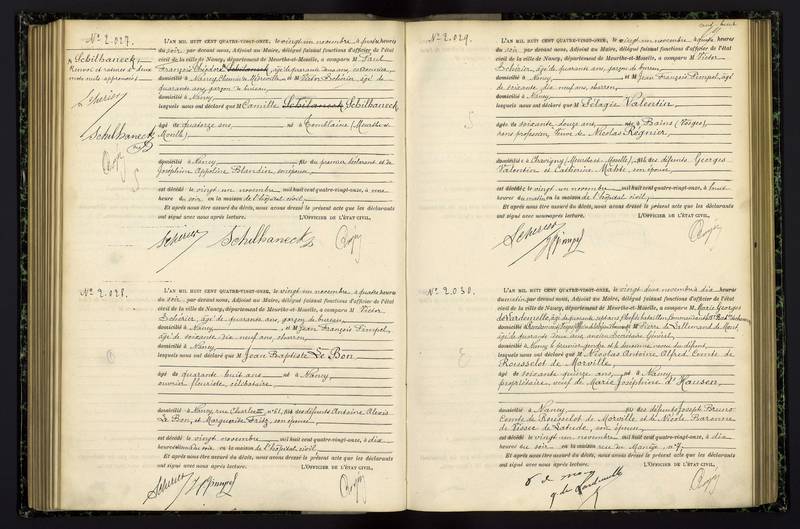 Nº 2.027.
Schilbaneck
L'AN MIL HUIT CENT QUATRE-VINGT-ONZE, le vingt un novembre, à quatre heures
du soir, par devant nous, Adjoint au Maire, délégué faisant fonctions d'officier de l'état
civil de la ville de Nancy, département de Meurthe-et-Moselle, a comparu M. Paul
François
domicilié à Nancy, et M Victor Scherier, âgé de
quarante ans, garçon de bureau,
domicilié à Nancy,
lesquels nous ont déclaré que M Camille Schilbaneck
âgé de quatorze ans, né à (Meurthe et
Moselle)
domicilié à Nancy fils du premier déclarant et de
Joséphine Appoline Blandin, son épouse,
est décédé le vingt un novembre mil huit cent quatre-vingt-onze, à une
heure du soir en la maison de l'hôpital civil,
Et après nous être assuré du décès, nous avons dressé le présent acte que les déclarants
ont signé avec nous après lecture. L'OFFICIER DE L'ÉTAT CIVIL,
Scherier Schilbaneck
Nº 2.028.
L'AN MIL HUIT CENT QUATRE-VINGT-ONZE, le vingt un novembre, à quatre heures
du soir, par devant nous, Adjoint au Maire, délégué faisant fonctions d'officier de l'état
civil de la ville de Nancy, département de Meurthe-et-Moselle, a comparu M. Victor
Scherier, âgé de quarante ans, garçon de bureau,
domicilié à Nancy, et M Jean François Pimpel,
âgé de soixante dix neuf ans, charron,
domicilié à Nancy,
lesquels nous ont déclaré que M Jean Baptiste Le Bon
âgé de quarante huit ans né à Nancy
ouvrier fleuriste, célibataire
domicilié à Nancy, rue Charles III, nº 61, fils des défunts Antoine Alexis
Le Bon, et Marguerite Fritz, son épouse,
est décédé le vingt novembre mil huit cent quatre-vingt-onze, à dix
heures du soir en la maison de l'hôpital civil,
Et après nous être assuré du décès, nous avons dressé le présent acte que les déclarants
ont signé avec nous après lecture. L'OFFICIER DE L'ÉTAT CIVIL,
Scherier Pimpel
Nº 2.029.
L'AN MIL HUIT CENT QUATRE-VINGT-ONZE, le vingt un novembre, à quatre heures
du soir, par devant nous, Adjoint au Maire, délégué faisant fonctions d'officier de l'état
civil de la ville de Nancy, département de Meurthe-et-Moselle, a comparu M. Victor
Scherier, âgé de quarante ans, garçon de bureau,
domicilié à Nancy, et M Jean François Pimpel, âgé
de soixante dix neuf ans, charron,
domicilié à Nancy,
lesquels nous ont déclaré que M Pélagie Valentin,
âgée de soixante douze ans, née à Bains (Vosges),
sans profession, veuve de Nicolas Régnier,
domiciliée à Chavigny (Meurthe et Moselle), fille des défunts Georges
Valentin et Catherine son épouse,
est décédée le vingt un novembre mil huit cent quatre-vingt-onze, à huit
heures du matin en la maison de l'hôpital civil,
Et après nous être assuré du décès, nous avons dressé le présent acte que les déclarants
ont signé avec nous après lecture. L'OFFICIER DE L'ÉTAT CIVIL,
Scherier
Pimpel
Nº 2.030.
L'AN MIL HUIT CENT QUATRE-VINGT-ONZE, le vingt deux novembre, à dix
heures du matin, par devant nous, Adjoint au Maire, délégué faisant fonctions d'officier de l'état
civil de la ville de Nancy, département de Meurthe-et-Moselle, a comparu M. Marie Georges
domicilié et M Pierre de Lallemand de Mont,
domicilié à Nancy
lesquels nous ont déclaré que M Nicolas Antoine Alfred Comte de
Rousselot de Morville,
âgé de soixante quinze ans, né à Nancy
propriétaire, veuf de Marie Joséphine d'Hausen,
domicilié à Nancy fils des défunts Joseph Bruno
Comte de Rousselot de Morville et de Nicole Baronne
son épouse
est décédé le vingt un novembre mil huit cent quatre-vingt-onze, à dix
heures du soir en la maison
Et après nous être assuré du décès, nous avons dressé le présent acte que les déclarants
ont signé avec nous après lecture. L'OFFICIER DE L'ÉTAT CIVIL,